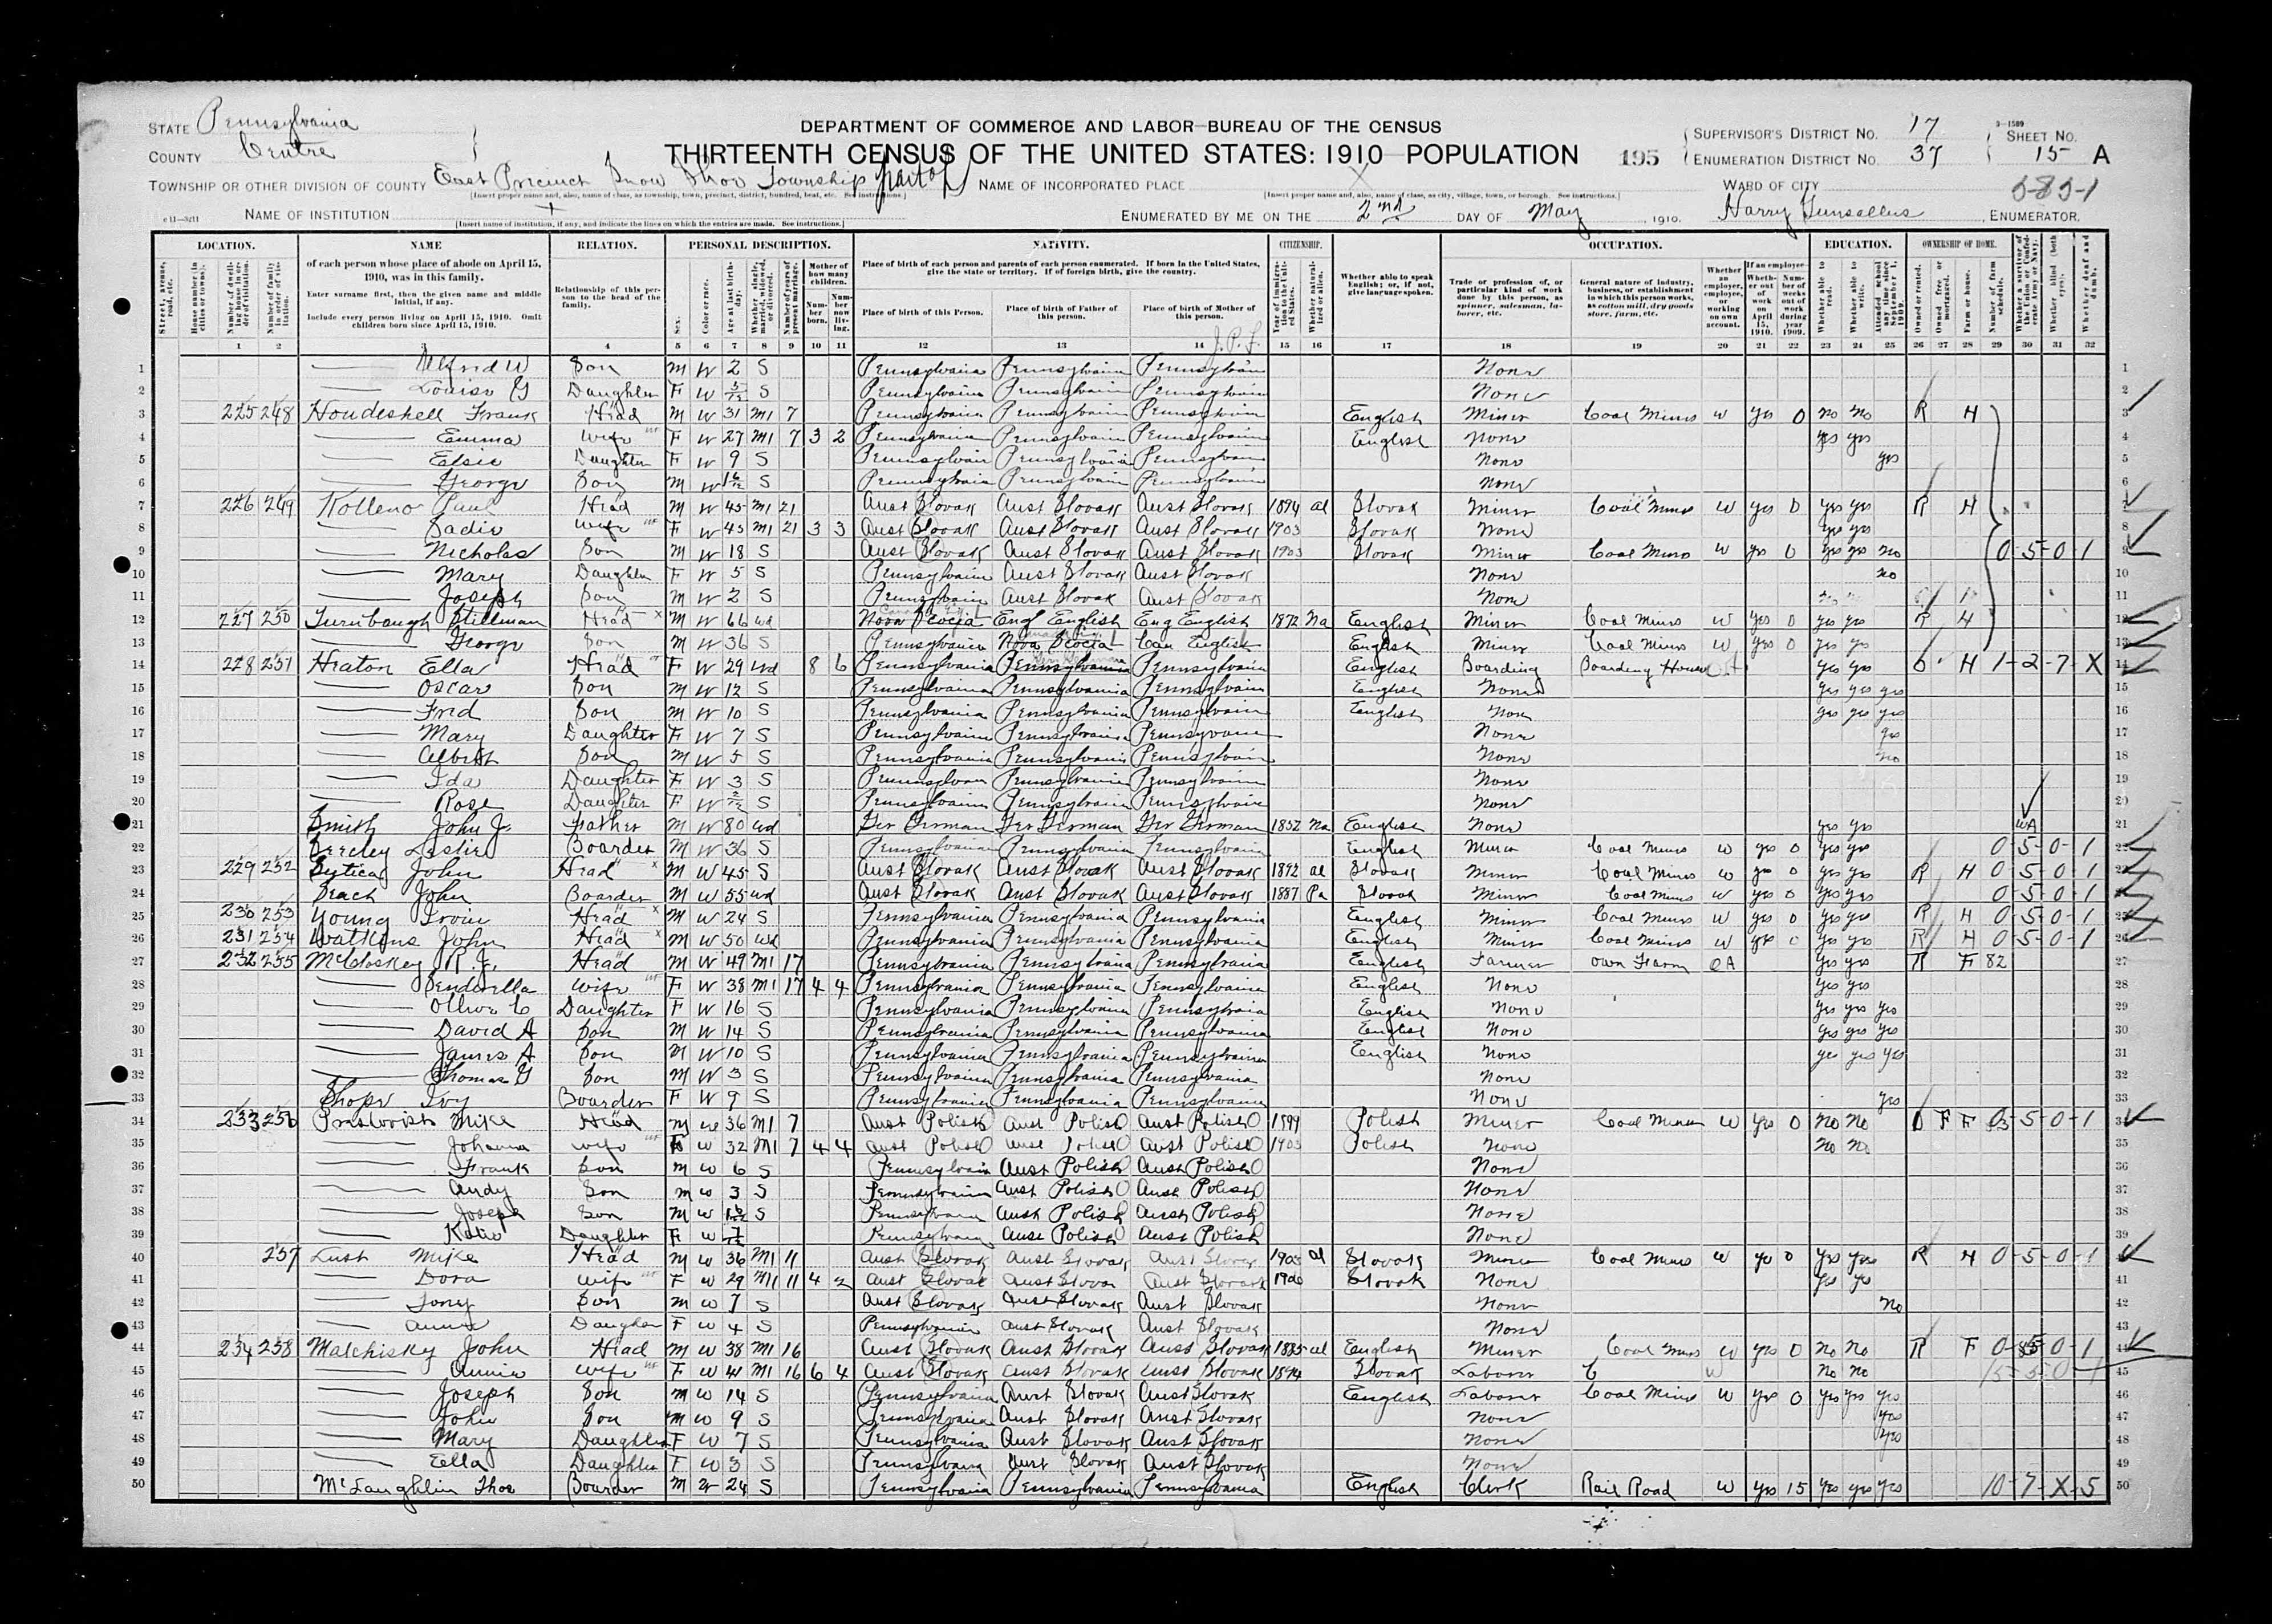 STATE Pennsylvania
COUNTY Centre
DEPARTMENT OF COMMERCE AND LABOR—BUREAU OF THE CENSUS
THIRTEENTH CENSUS OF THE UNITED STATES: 1910 POPULATION
195
SUPERVISOR'S DISTRICT No. 17
ENUMERATION DISTRICT No. 37
3—1589
SHEET No. 15 A
5-85-1
TOWNSHIP OR OTHER DIVISION OF COUNTY East Precinct Snow Shoe Township part of
NAME OF INCORPORATED PLACE X
WARD OF CITY
NAME OF INSTITUTION X
ENUMERATED BY ME ON THE 2nd DAY OF May, 1910. Harry Gunsallus, ENUMERATOR.
LOCATION. NAME RELATION. PERSONAL DESCRIPTION. NATIVITY. CITIZENSHIP. OCCUPATION. EDUCATION. OWNERSHIP OF HOME.
of each person whose place of abode on April 15, 1910, was in this family.
Enter surname first, then the given name and middle initial, if any.
Include every person living on April 15, 1910. Omit children born since April 15, 1910.
Relationship of this person to the head of the family.
Place of birth of each person and parents of each person enumerated. If born in the United States, give the state or territory. If of foreign birth, give the country.
Place of birth of this Person. Place of birth of Father of this person. Place of birth of Mother of this person.
Whether able to speak English; or, if not, give language spoken.
1 2 3 4 5 6 7 8 9 10 11 12 13 14 15 16 17 18 19 20 21 22 23 24 25 26 27 28 29 30 31 32
1 Alfred W Son M W 2 S Pennsylvania Pennsylvania Pennsylvania None
2 Louisa G Daughter F W 5/12 S Pennsylvania Pennsylvania Pennsylvania None
3 225 248 Houdeshell Frank Head M W 31 M1 7 Pennsylvania Pennsylvania Pennsylvania English Miner Coal Mines W yes 0 no no R H
4 Emma Wife F W 27 M1 7 3 2 Pennsylvania Pennsylvania Pennsylvania English None yes yes
5 Elsie Daughter F W 9 S Pennsylvania Pennsylvania Pennsylvania None yes
6 George Son M W S Pennsylvania Pennsylvania Pennsylvania None
7 226 249 Kolleno Paul Head M W 45 M1 21 Aust Slovak Aust Slovak Aust Slovak 1894 al Slovak Miner Coal Mines W yes 0 yes yes R H
8 Sadie Wife F W 45 M1 21 3 3 Aust Slovak Aust Slovak Aust Slovak 1903 Slovak None yes yes
9 Nicholas Son M W 18 S Aust Slovak Aust Slovak Aust Slovak 1903 Slovak Miner Coal Mines W yes 0 yes yes no 0-5-0-1
10 Mary Daughter F W 5 S Pennsylvania Aust Slovak Aust Slovak None no
11 Joseph Son M W 2 S Pennsylvania Aust Slovak Aust Slovak None
12 227 250 Turnbaugh Stillman Head M W 66 wd Nova Scocia Eng English Eng English 1872 Na English Miner Coal Mines W yes 0 yes yes R H
13 George Son M W 36 S Pennsylvania Nova Scocia Can English English Miner Coal Mines W yes 0 yes yes
14 228 251 Heaton Ella Head F W 29 wd 8 6 Pennsylvania Pennsylvania Pennsylvania English Boarding Boarding House yes yes O H 1-2-7-X
15 Oscar Son M W 12 S Pennsylvania Pennsylvania Pennsylvania English None yes yes yes
16 Fred Son M W 10 S Pennsylvania Pennsylvania Pennsylvania English None yes yes yes
17 Mary Daughter F W 7 S Pennsylvania Pennsylvania Pennsylvania None yes
18 Albert Son M W 5 S Pennsylvania Pennsylvania Pennsylvania None no
19 Ida Daughter F W 3 S Pennsylvania Pennsylvania Pennsylvania None
20 Rose Daughter F W S Pennsylvania Pennsylvania Pennsylvania None
21 Smith John J. Father M W 80 wd Ger German Ger German Ger German 1852 Na English None yes yes UA
22 Leslie Boarder M W 36 S Pennsylvania Pennsylvania Pennsylvania English Miner Coal Mines W yes 0 yes yes 0-5-0-1
23 229 252 John Head M W 45 S Aust Slovak Aust Slovak Aust Slovak 1892 al Slovak Miner Coal Mines W yes 0 yes yes R H 0-5-0-1
24 John Boarder M W 55 wd Aust Slovak Aust Slovak Aust Slovak 1887 Pa Slovak Miner Coal Mines W yes 0 yes yes 0-5-0-1
25 230 253 Young Irvin Head M W 24 S Pennsylvania Pennsylvania Pennsylvania English Miner Coal Mines W yes 0 yes yes R H 0-5-0-1
26 231 254 Watkins John Head M W 50 wd Pennsylvania Pennsylvania Pennsylvania English Miner Coal Mines W yes 0 yes yes R H 0-5-0-1
27 232 255 McCloskey R. J. Head M W 49 M1 17 Pennsylvania Pennsylvania Pennsylvania English Farmer Own Farm OA yes yes R F 82
28 Wife F W 38 M1 17 4 4 Pennsylvania Pennsylvania Pennsylvania English None yes yes
29 Olive C Daughter F W 16 S Pennsylvania Pennsylvania Pennsylvania English None yes yes yes
30 David A Son M W 14 S Pennsylvania Pennsylvania Pennsylvania English None yes yes yes
31 James A Son M W 10 S Pennsylvania Pennsylvania Pennsylvania English None yes yes yes
32 Thomas G Son M W 3 S Pennsylvania Pennsylvania Pennsylvania None
33 Shope Ivy Boarder F W 9 S Pennsylvania Pennsylvania Pennsylvania None yes
34 233 256 Mike Head M W 36 M1 7 Aust Polish Aust Polish Aust Polish 1894 Polish Miner Coal Mines W yes 0 No No O F F 0-5-0-1
35 Johanna Wife F W 32 M1 7 4 4 Aust Polish Aust Polish Aust Polish 1903 Polish None No No
36 Frank Son M W 6 S Pennsylvania Aust Polish Aust Polish None
37 Andy Son M W 3 S Pennsylvania Aust Polish Aust Polish None
38 Joseph Son M W S Pennsylvania Aust Polish Aust Polish None
39 Katie Daughter F W S Pennsylvania Aust Polish Aust Polish None
40 257 Lust Mike Head M W 36 M1 11 Aust Slovak Aust Slovak Aust Slovak al Slovak Miner Coal Mines W yes 0 yes yes R H 0-5-0-1
41 Dora Wife F W 29 M1 11 4 2 Aust Slovak Aust Slovak Aust Slovak 1906 Slovak None yes yes
42 Tony Son M W 7 S Aust Slovak Aust Slovak Aust Slovak None No
43 Annie Daughter F W 4 S Pennsylvania Aust Slovak Aust Slovak None
44 234 258 Malchisky John Head M W 38 M1 16 Aust Slovak Aust Slovak Aust Slovak 1885 al English Miner Coal Mines W yes 0 No No R F 0-5-0-1
45 Annie Wife F W 41 M1 16 6 4 Aust Slovak Aust Slovak Aust Slovak 1894 Slovak Laborer W No No
46 Joseph Son M W 14 S Pennsylvania Aust Slovak Aust Slovak English Laborer Coal Mines W yes 0 yes yes yes
47 John Son M W 9 S Pennsylvania Aust Slovak Aust Slovak None yes
48 Mary Daughter F W 7 S Pennsylvania Aust Slovak Aust Slovak None yes
49 Ella Daughter F W 3 S Pennsylvania Aust Slovak Aust Slovak None
50 McLaughlin Thos Boarder M W 24 S Pennsylvania Pennsylvania Pennsylvania English Clerk Rail Road W yes 15 yes yes yes 10-7-X-5